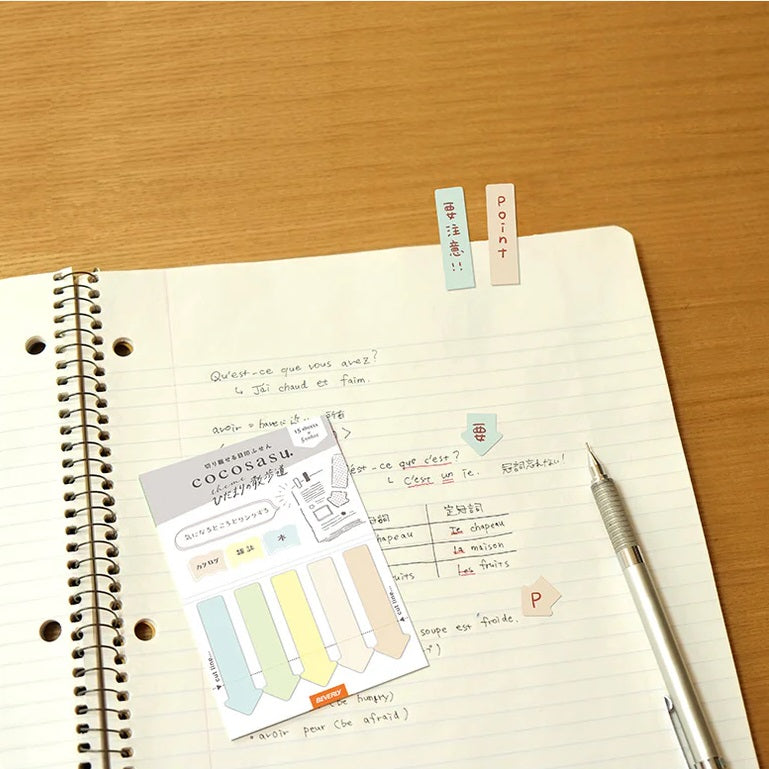 要注意!!
Point
Qu'est-ce que vous avez?
↳ J'ai chaud et faim.
avoir = haveに近い
要
est-ce que c'est?
↳ C'est un ie.
冠詞忘れない!
冠詞
定冠詞
chapeau
Le chapeau
La maison
uits
Les fruits
P
soupe est "froide.
(be hungry)
・avoir peur (be afraid)
15 sheets
×
5 color
切り離せる目印ふせん
cocosasu.
theme
ひだまりの散歩道
気になるところとリンクする
カタログ
雑誌
本
cut line...
cut line...
BEVERLY